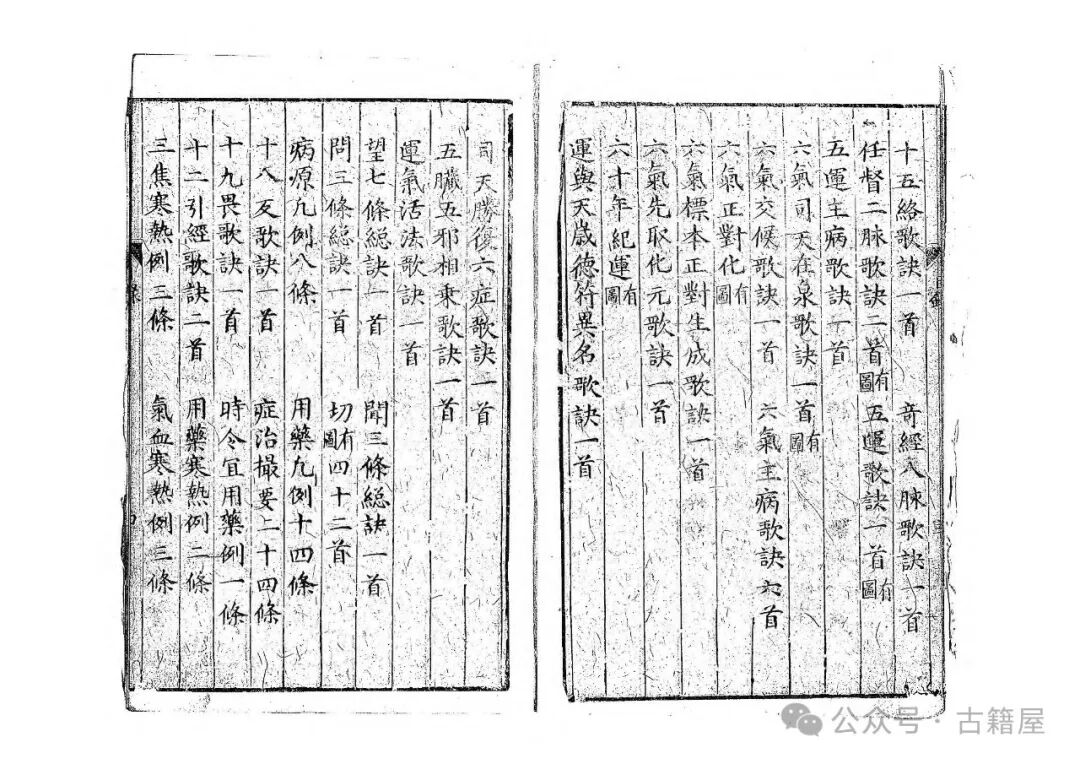 十五絡歌訣一首　奇經八脉歌訣一首
任督二脉歌訣二首有圖　五運歌訣一首有圖
五運主病歌訣一首
六氣司天在泉歌訣一首有圖
六氣交候歌訣一首　六氣主病歌訣六首
六氣正對化有圖
六氣標本正對生成歌訣一首
六氣先取化元歌訣一首
六十年紀運有圖
運與天歲德符異名歌訣一首
司天勝復六症歌訣一首
五臟五邪相乘歌訣一首
運氣活法歌訣一首
望七條総訣一首　聞三條総訣一首
問三條総訣一首　切有圖四十二首
病源九例八條　用藥九例十四條
十八反歌訣一首　症治撮要二十四條
十九畏歌訣一首　時令宜用藥例一條
十二引經歌訣二首　用藥寒熱例二條
三焦寒熱例三條　氣血寒熱例三條
公众号·古籍屋